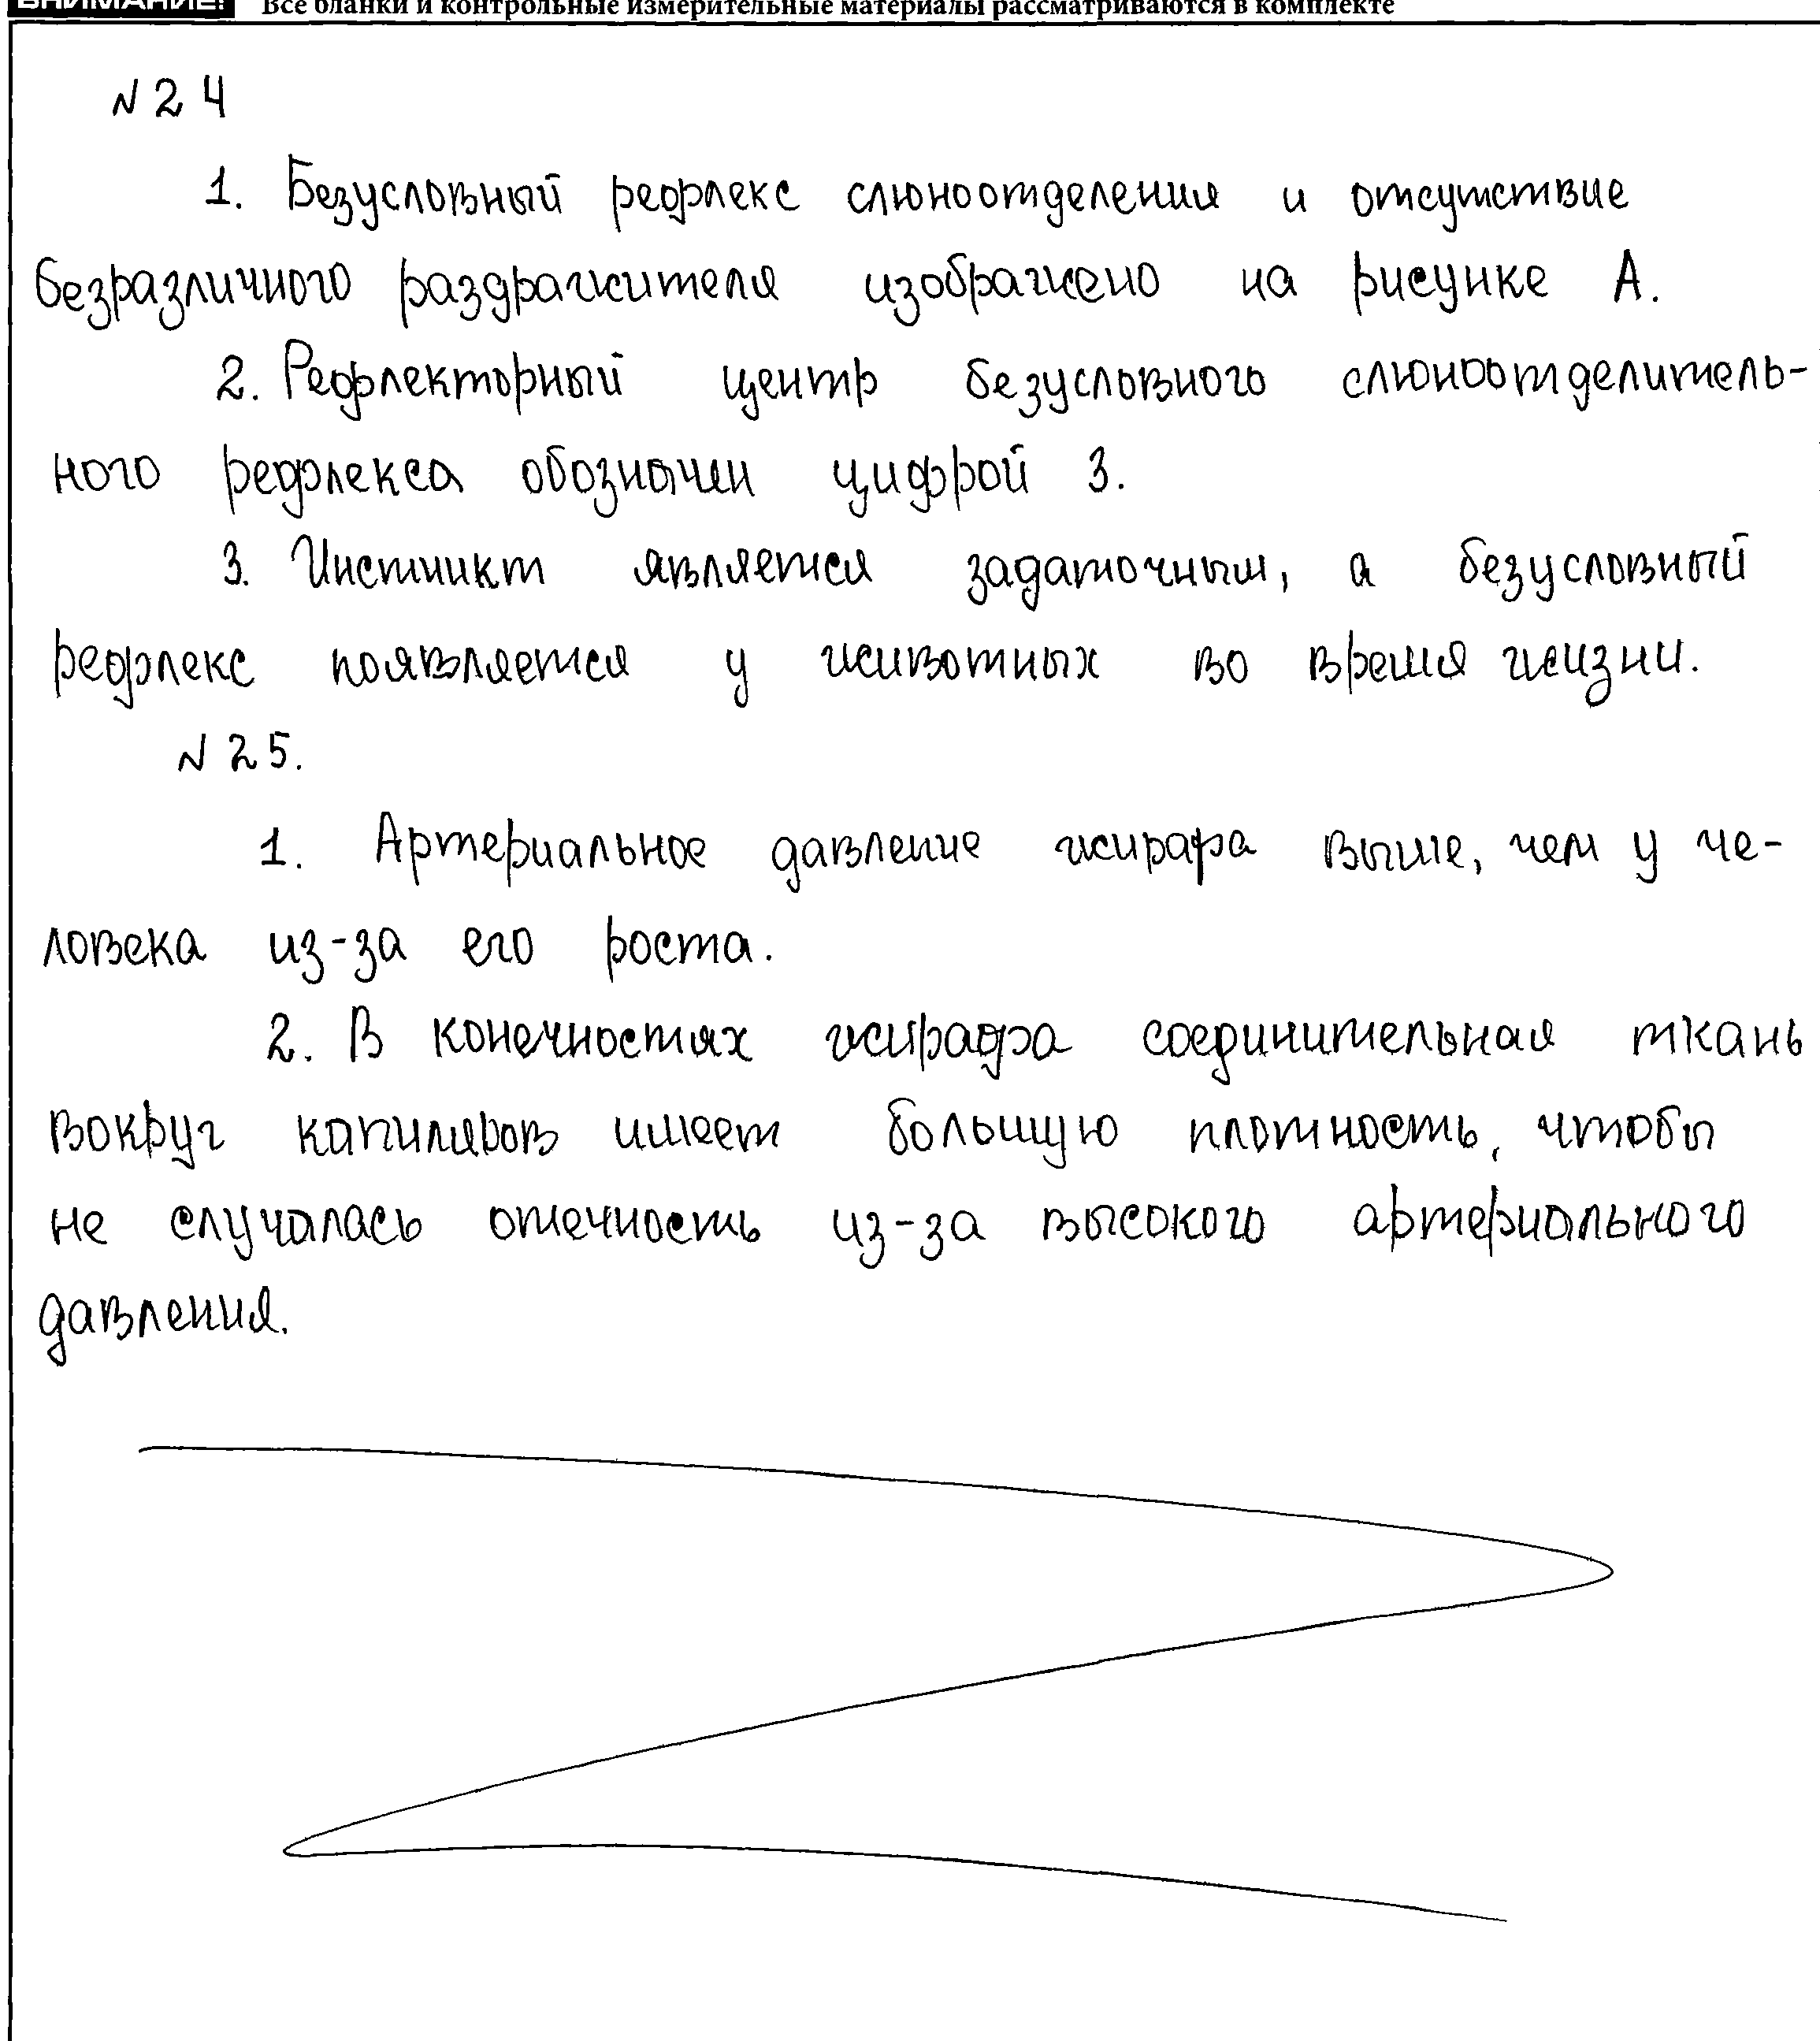 ВНИМАНИЕ! Все бланки и контрольные измерительные материалы рассматриваются в комплекте
N 24
1. Безусловный рефлекс слюноотделения и отсутствие
безразличного раздражителя изображено на рисунке А.
2. Рефлекторный центр безусловного слюноотделитель-
ного рефлекса обозначен цифрой 3.
3. Инстинкт является задаточным, а безусловный
рефлекс появляется у животных во время жизни.
N 25.
1. Артериальное давление жирафа выше, чем у че-
ловека из-за его роста.
2. В конечностях жирафа соединительная ткань
вокруг капиляров имеет большую плотность, чтобы
не случалась отечность из-за высокого артериального
давления.